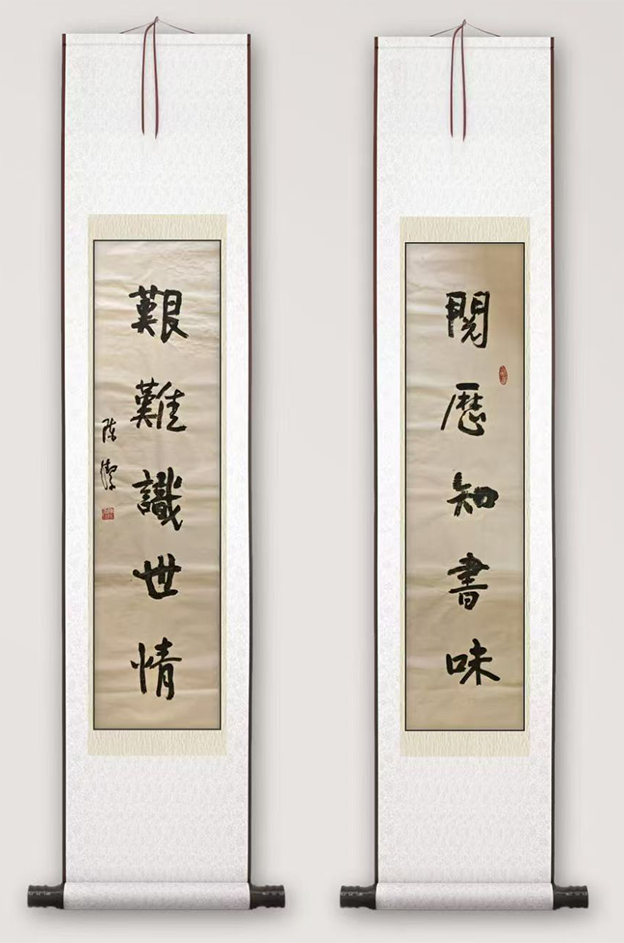 閱歷知書味
艱難識世情
陈潔